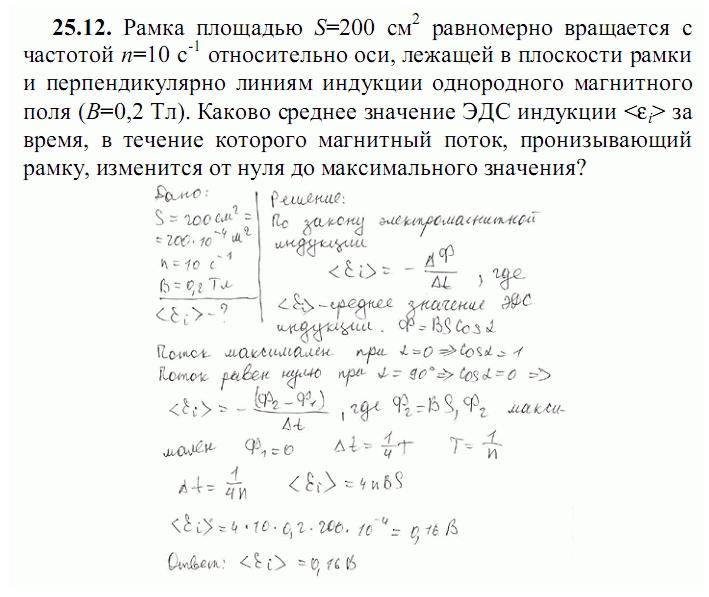 25.12. Рамка площадью S=200 см² равномерно вращается с
частотой n=10 с⁻¹ относительно оси, лежащей в плоскости рамки
и перпендикулярно линиям индукции однородного магнитного
поля (B=0,2 Тл). Каково среднее значение ЭДС индукции <εᵢ> за
время, в течение которого магнитный поток, пронизывающий
рамку, изменится от нуля до максимального значения?
Дано:
S = 200 см² =
= 200·10⁻⁴ м²
n = 10 с⁻¹
B = 0,2 Тл
<Ɛᵢ> - ?
Решение:
По закону электромагнитной
индукции
<Ɛᵢ> = - ΔФ/Δt , где
<Ɛᵢ> - среднее значение ЭДС
индукции. Ф = BScosα
Поток максимален при α=0 => cosα=1
Поток равен нулю при α=90° => cosα=0 =>
<Ɛᵢ> = - (Ф₂ - Ф₁)/Δt , где Ф₂=BS, Ф₂ макси-
мален Ф₁=0 Δt = 1/4 T T = 1/n
Δt = 1/4n <Ɛᵢ> = 4nBS
<Ɛᵢ> = 4·10·0,2·200·10⁻⁴ = 0,16 В
Ответ: <Ɛᵢ> = 0,16 В